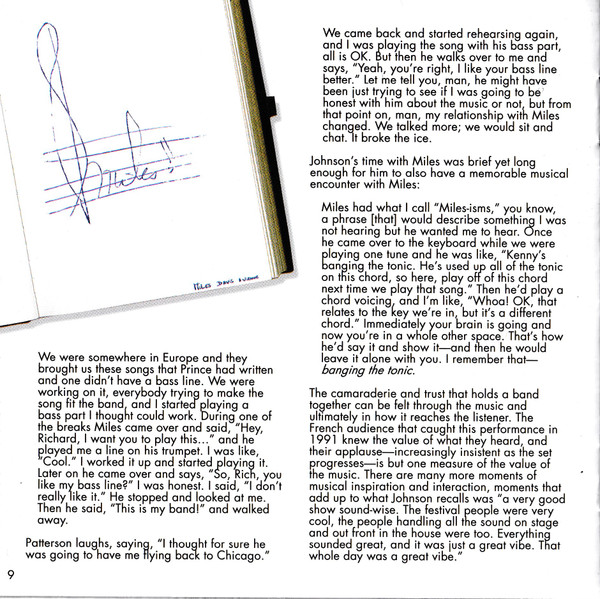 Miles
MILES DAVIS VIENNE
We were somewhere in Europe and they
brought us these songs that Prince had written
and one didn't have a bass line. We were
working on it, everybody trying to make the
song fit the band, and I started playing a
bass part I thought could work. During one of
the breaks Miles came over and said, "Hey,
Richard, I want you to play this..." and he
played me a line on his trumpet. I was like,
"Cool." I worked it up and started playing it.
Later on he came over and says, "So, Rich, you
like my bass line?" I was honest. I said, "I don't
really like it." He stopped and looked at me.
Then he said, "This is my band!" and walked
away.
Patterson laughs, saying, "I thought for sure he
was going to have me flying back to Chicago."
9
We came back and started rehearsing again,
and I was playing the song with his bass part,
all is OK. But then he walks over to me and
says, "Yeah, you're right, I like your bass line
better." Let me tell you, man, he might have
been just trying to see if I was going to be
honest with him about the music or not, but from
that point on, man, my relationship with Miles
changed. We talked more; we would sit and
chat. It broke the ice.
Johnson's time with Miles was brief yet long
enough for him to also have a memorable musical
encounter with Miles:
Miles had what I call "Miles-isms," you know,
a phrase [that] would describe something I was
not hearing but he wanted me to hear. Once
he came over to the keyboard while we were
playing one tune and he was like, "Kenny's
banging the tonic. He's used up all of the tonic
on this chord, so here, play off of this chord
next time we play that song." Then he'd play a
chord voicing, and I'm like, "Whoa! OK, that
relates to the key we're in, but it's a different
chord." Immediately your brain is going and
now you're in a whole other space. That's how
he'd say it and show it—and then he would
leave it alone with you. I remember that—
banging the tonic.
The camaraderie and trust that holds a band
together can be felt through the music and
ultimately in how it reaches the listener. The
French audience that caught this performance in
1991 knew the value of what they heard, and
their applause—increasingly insistent as the set
progresses—is but one measure of the value of
the music. There are many more moments of
musical inspiration and interaction, moments that
add up to what Johnson recalls was "a very good
show sound-wise. The festival people were very
cool, the people handling all the sound on stage
and out front in the house were too. Everything
sounded great, and it was just a great vibe. That
whole day was a great vibe."